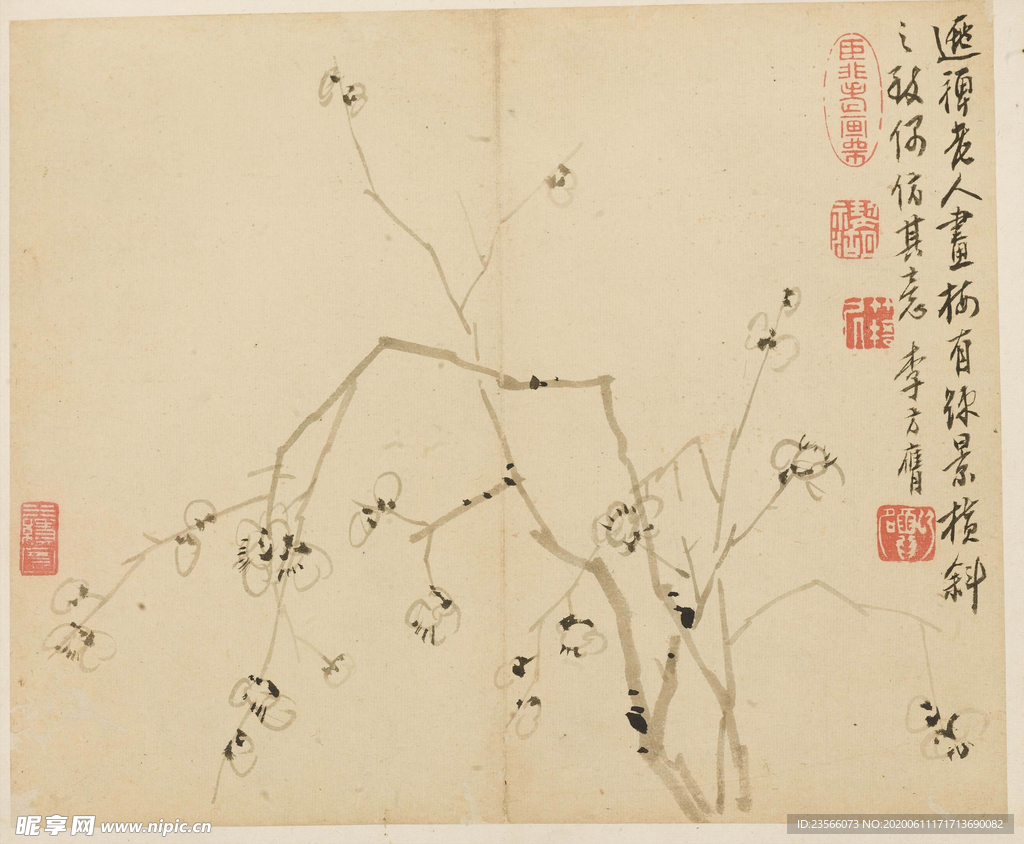 遯禪老人畫梅有疎景橫斜
之致偶仿其意 李方膺
臣非老畫師
昵享网 www.nipic.cn
ID:23566073 NO:20200611171713690082